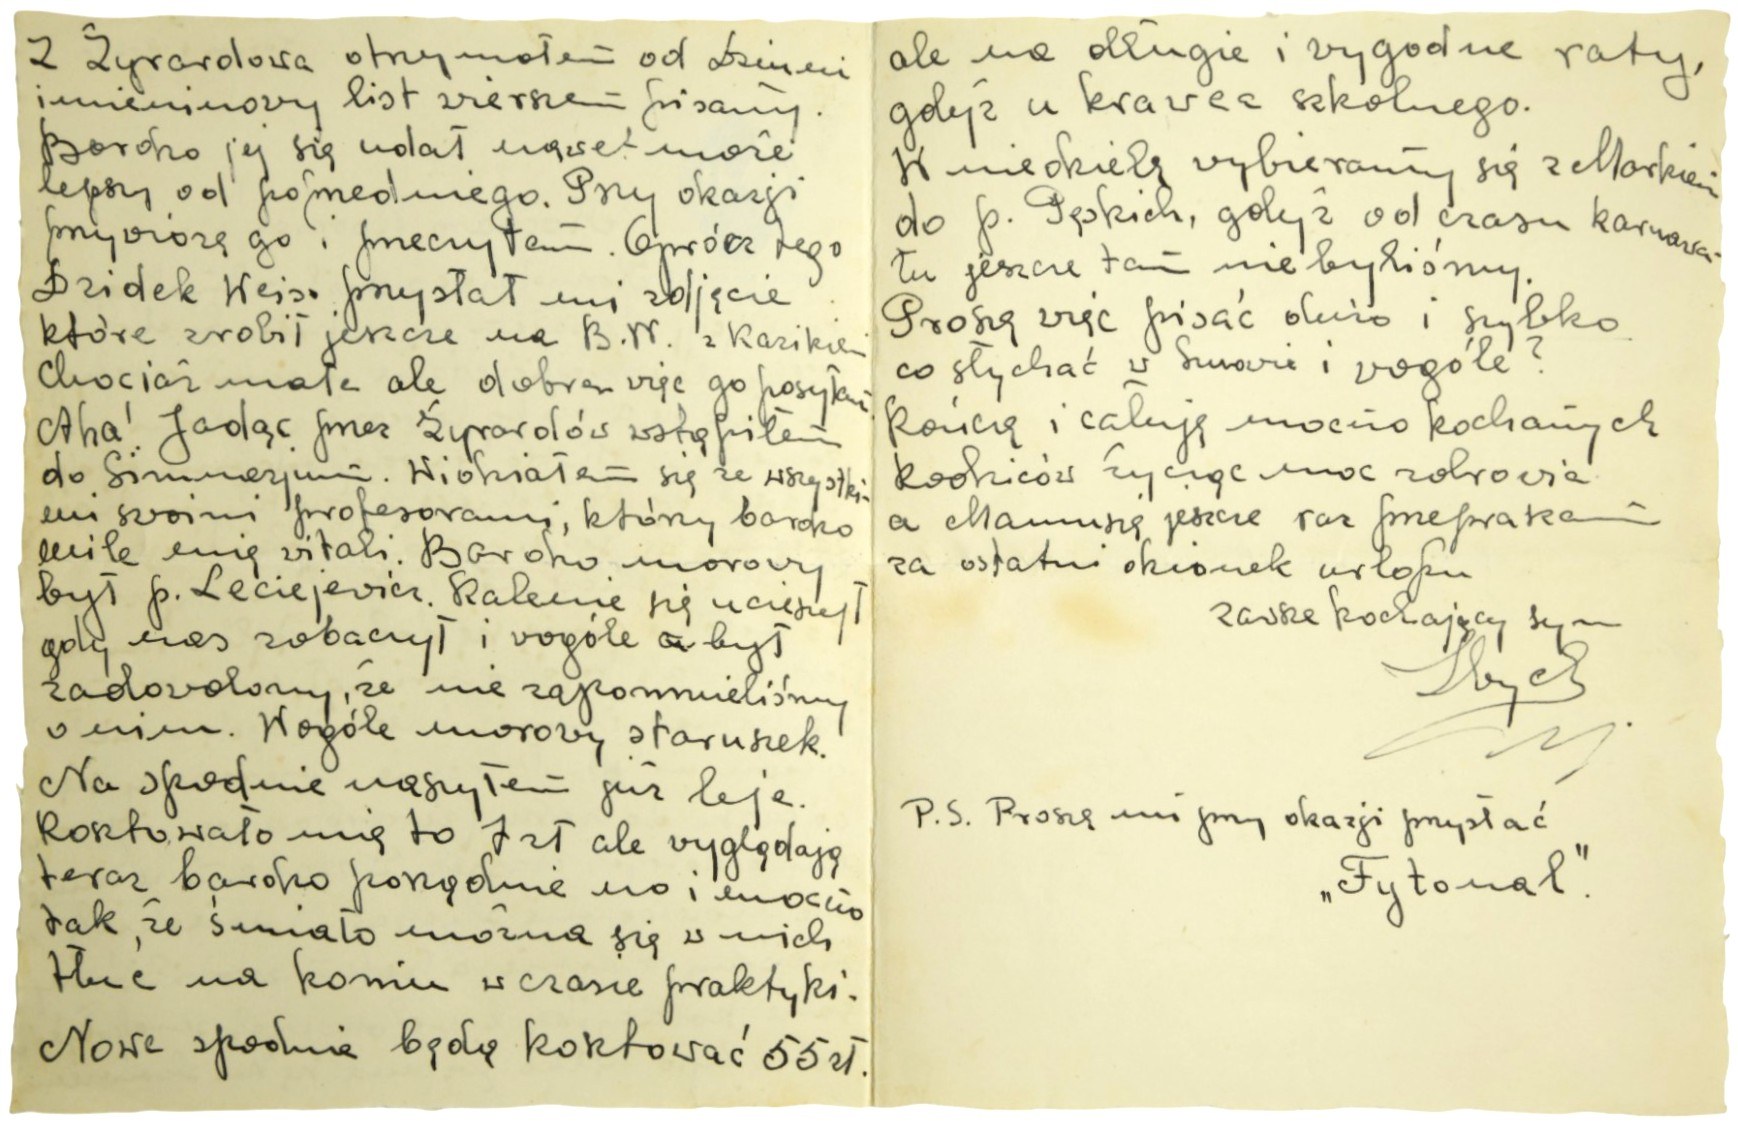 Z Żyrardowa otrzymałem od Dziuni
imieninowy list wierszem pisany.
Bardzo jej się udał nawet może
lepszy od poprzedniego. Przy okazji
przywiozę go i przeczytam. Oprócz tego
Dzidek Weiss przysłał mi zdjęcie
które zrobił jeszcze na B.W. z Kazikiem
Chociaż małe ale dobre więc go posyłam
Aha! Jadąc przez Żyrardów wstąpiłem
do Gimnazjum. Widziałem się ze wszystki-
mi swoimi profesorami, którzy bardzo
mile mię witali. Bardzo morowy
był p. Leciejewicz. Szalenie się ucieszył
gdy nas zobaczył i wogóle był
zadowolony, że nie zapomnieliśmy
o nim. Wogóle morowy staruszek.
Na spodnie naszyłem już leje.
Kosztowało mię to 7 zł ale wyglądają
teraz bardzo porządnie no i mocno
tak, że śmiało można się w nich
tłuc na koniu w czasie praktyki.
Nowe spodnie będą kosztować 55 zł.
ale na długie i wygodne raty,
gdyż u krawca szkolnego.
W niedzielę wybieramy się z Markiem
do p. Pęskich, gdyż od czasu karnawa-
łu jeszcze tam nie byliśmy.
Proszę więc pisać dużo i szybko
co słychać w Smowie i wogóle?
Kończę i całuję mocno kochanych
Rodziców życząc moc zdrowia
a Mamusię jeszcze raz przepraszam
za ostatni dzionek urlopu
zawsze kochający syn
Zbych
P.S. Proszę mi przy okazji przysłać
„Fytonal".